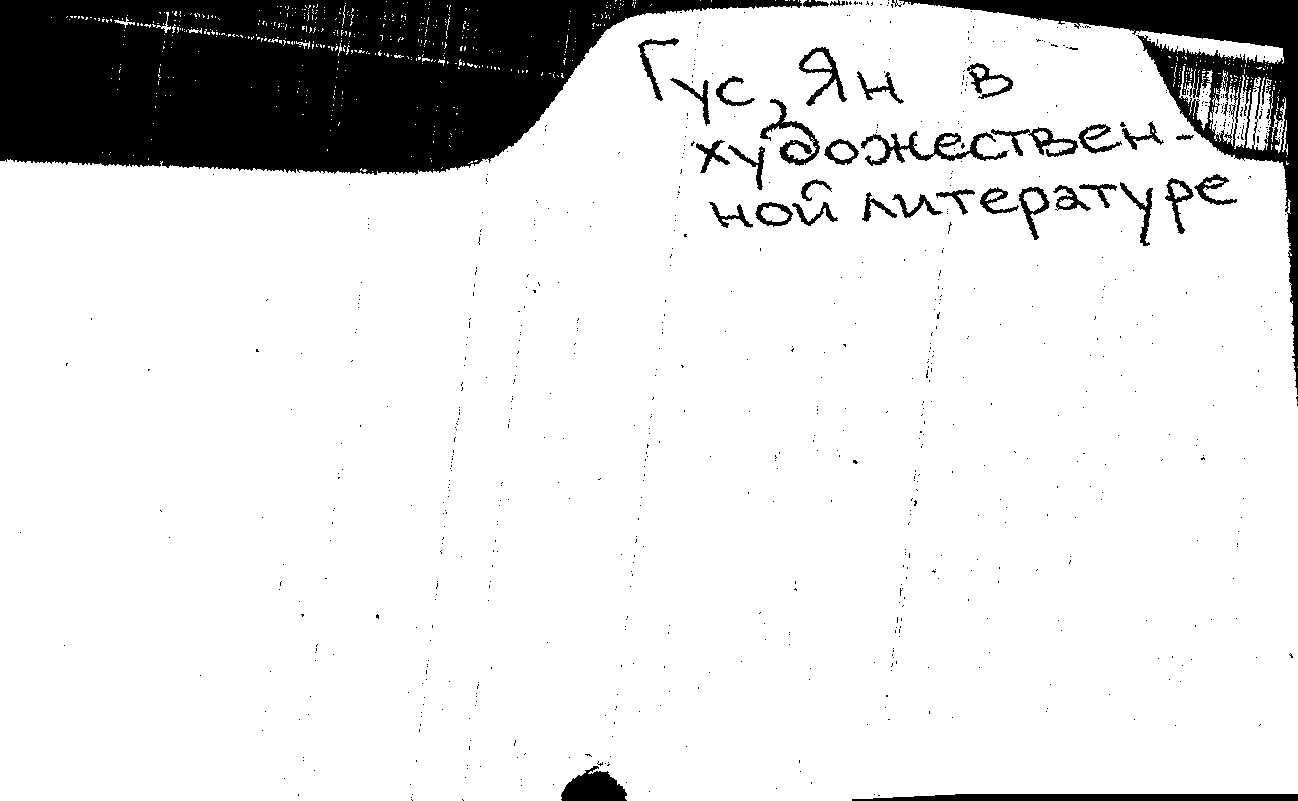 Гус, Ян в
художествен-
ной литературе